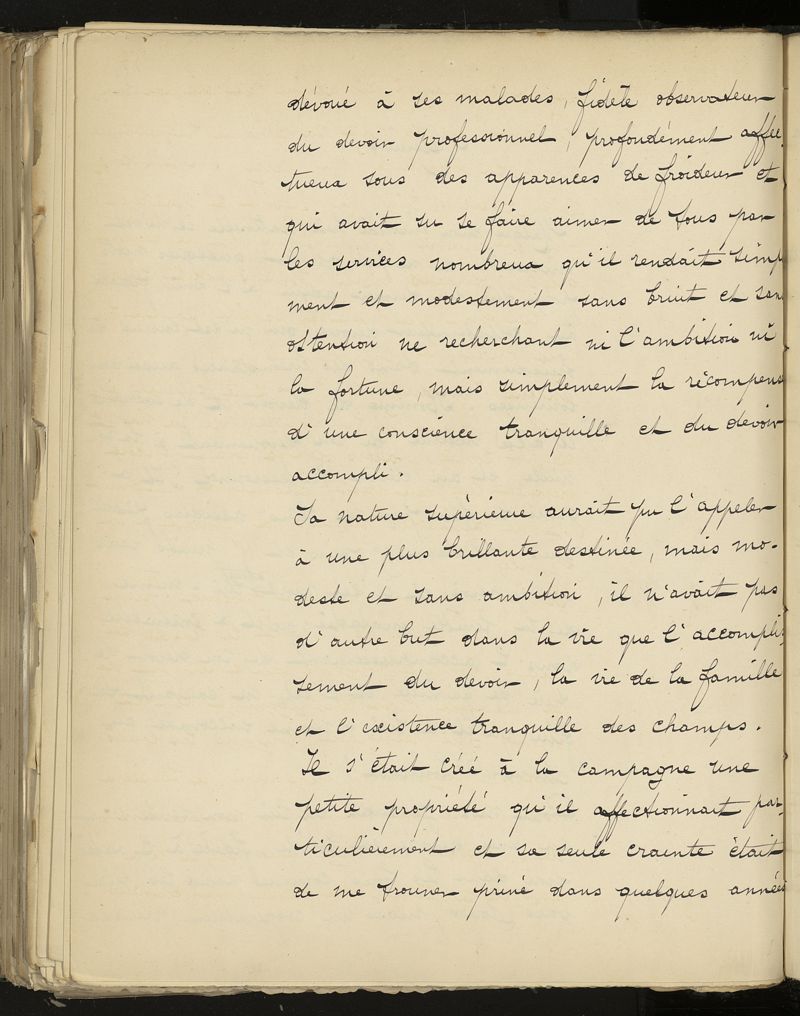 dévoué à ses malades, fidèle observateur
du devoir professionnel, profondément affec
tueux sous des apparences de froideur et
qui avait su se faire aimer de tous par
les services nombreux qu'il rendait simp
ment et modestement sans bruit et san
ostention ne recherchant ni l'ambition ni
la fortune, mais simplement la récompens
d'une conscience tranquille et du devoir
accompli.
Sa nature supérieure aurait pu l'appeler
à une plus brillante destinée, mais mo-
deste et sans ambition, il n'avait pas
d'autre but dans la vie que l'accomplis
sement du devoir, la vie de la famille
et l'existence tranquille des champs.
Il s'était créé à la campagne une
petite propriété qu'il affectionnait par-
ticulièrement et sa seule crainte était
de me trouver privé dans quelques années